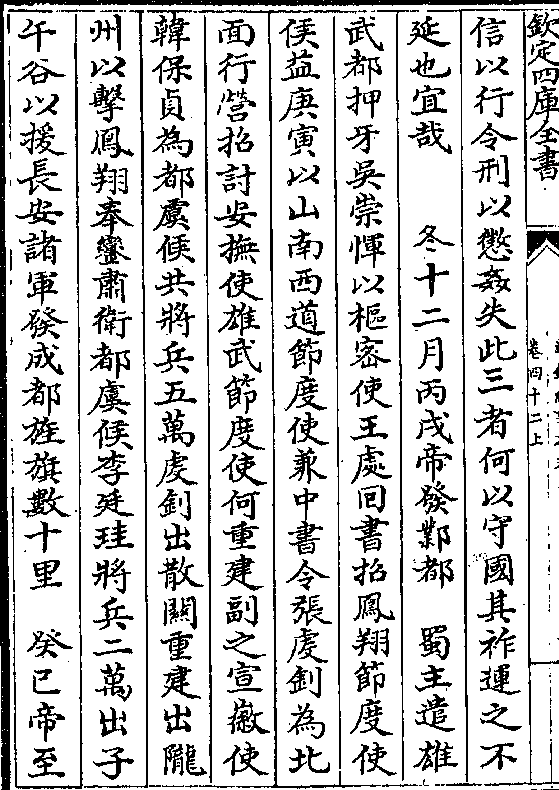 欽定四庫全書
卷四十二上
信以行令刑以懲姦失此三者何以守國其祚運之不
延也宜哉　冬十二月丙戌帝發鄴都　蜀主遣雄
武都押牙吳崇惲以樞密使王處回書招鳳翔節度使
侯益庚寅以山南西道節度使兼中書令張虔釗為北
面行營招討安撫使雄武節度使何重建副之宣徽使
韓保貞為都虞候共將兵五萬虔釗出散關重建出隴
州以擊鳳翔奉鑾肅衛都虞候李廷珪將兵二萬出子
午谷以援長安諸軍發成都旌旗數十里　癸巳帝至